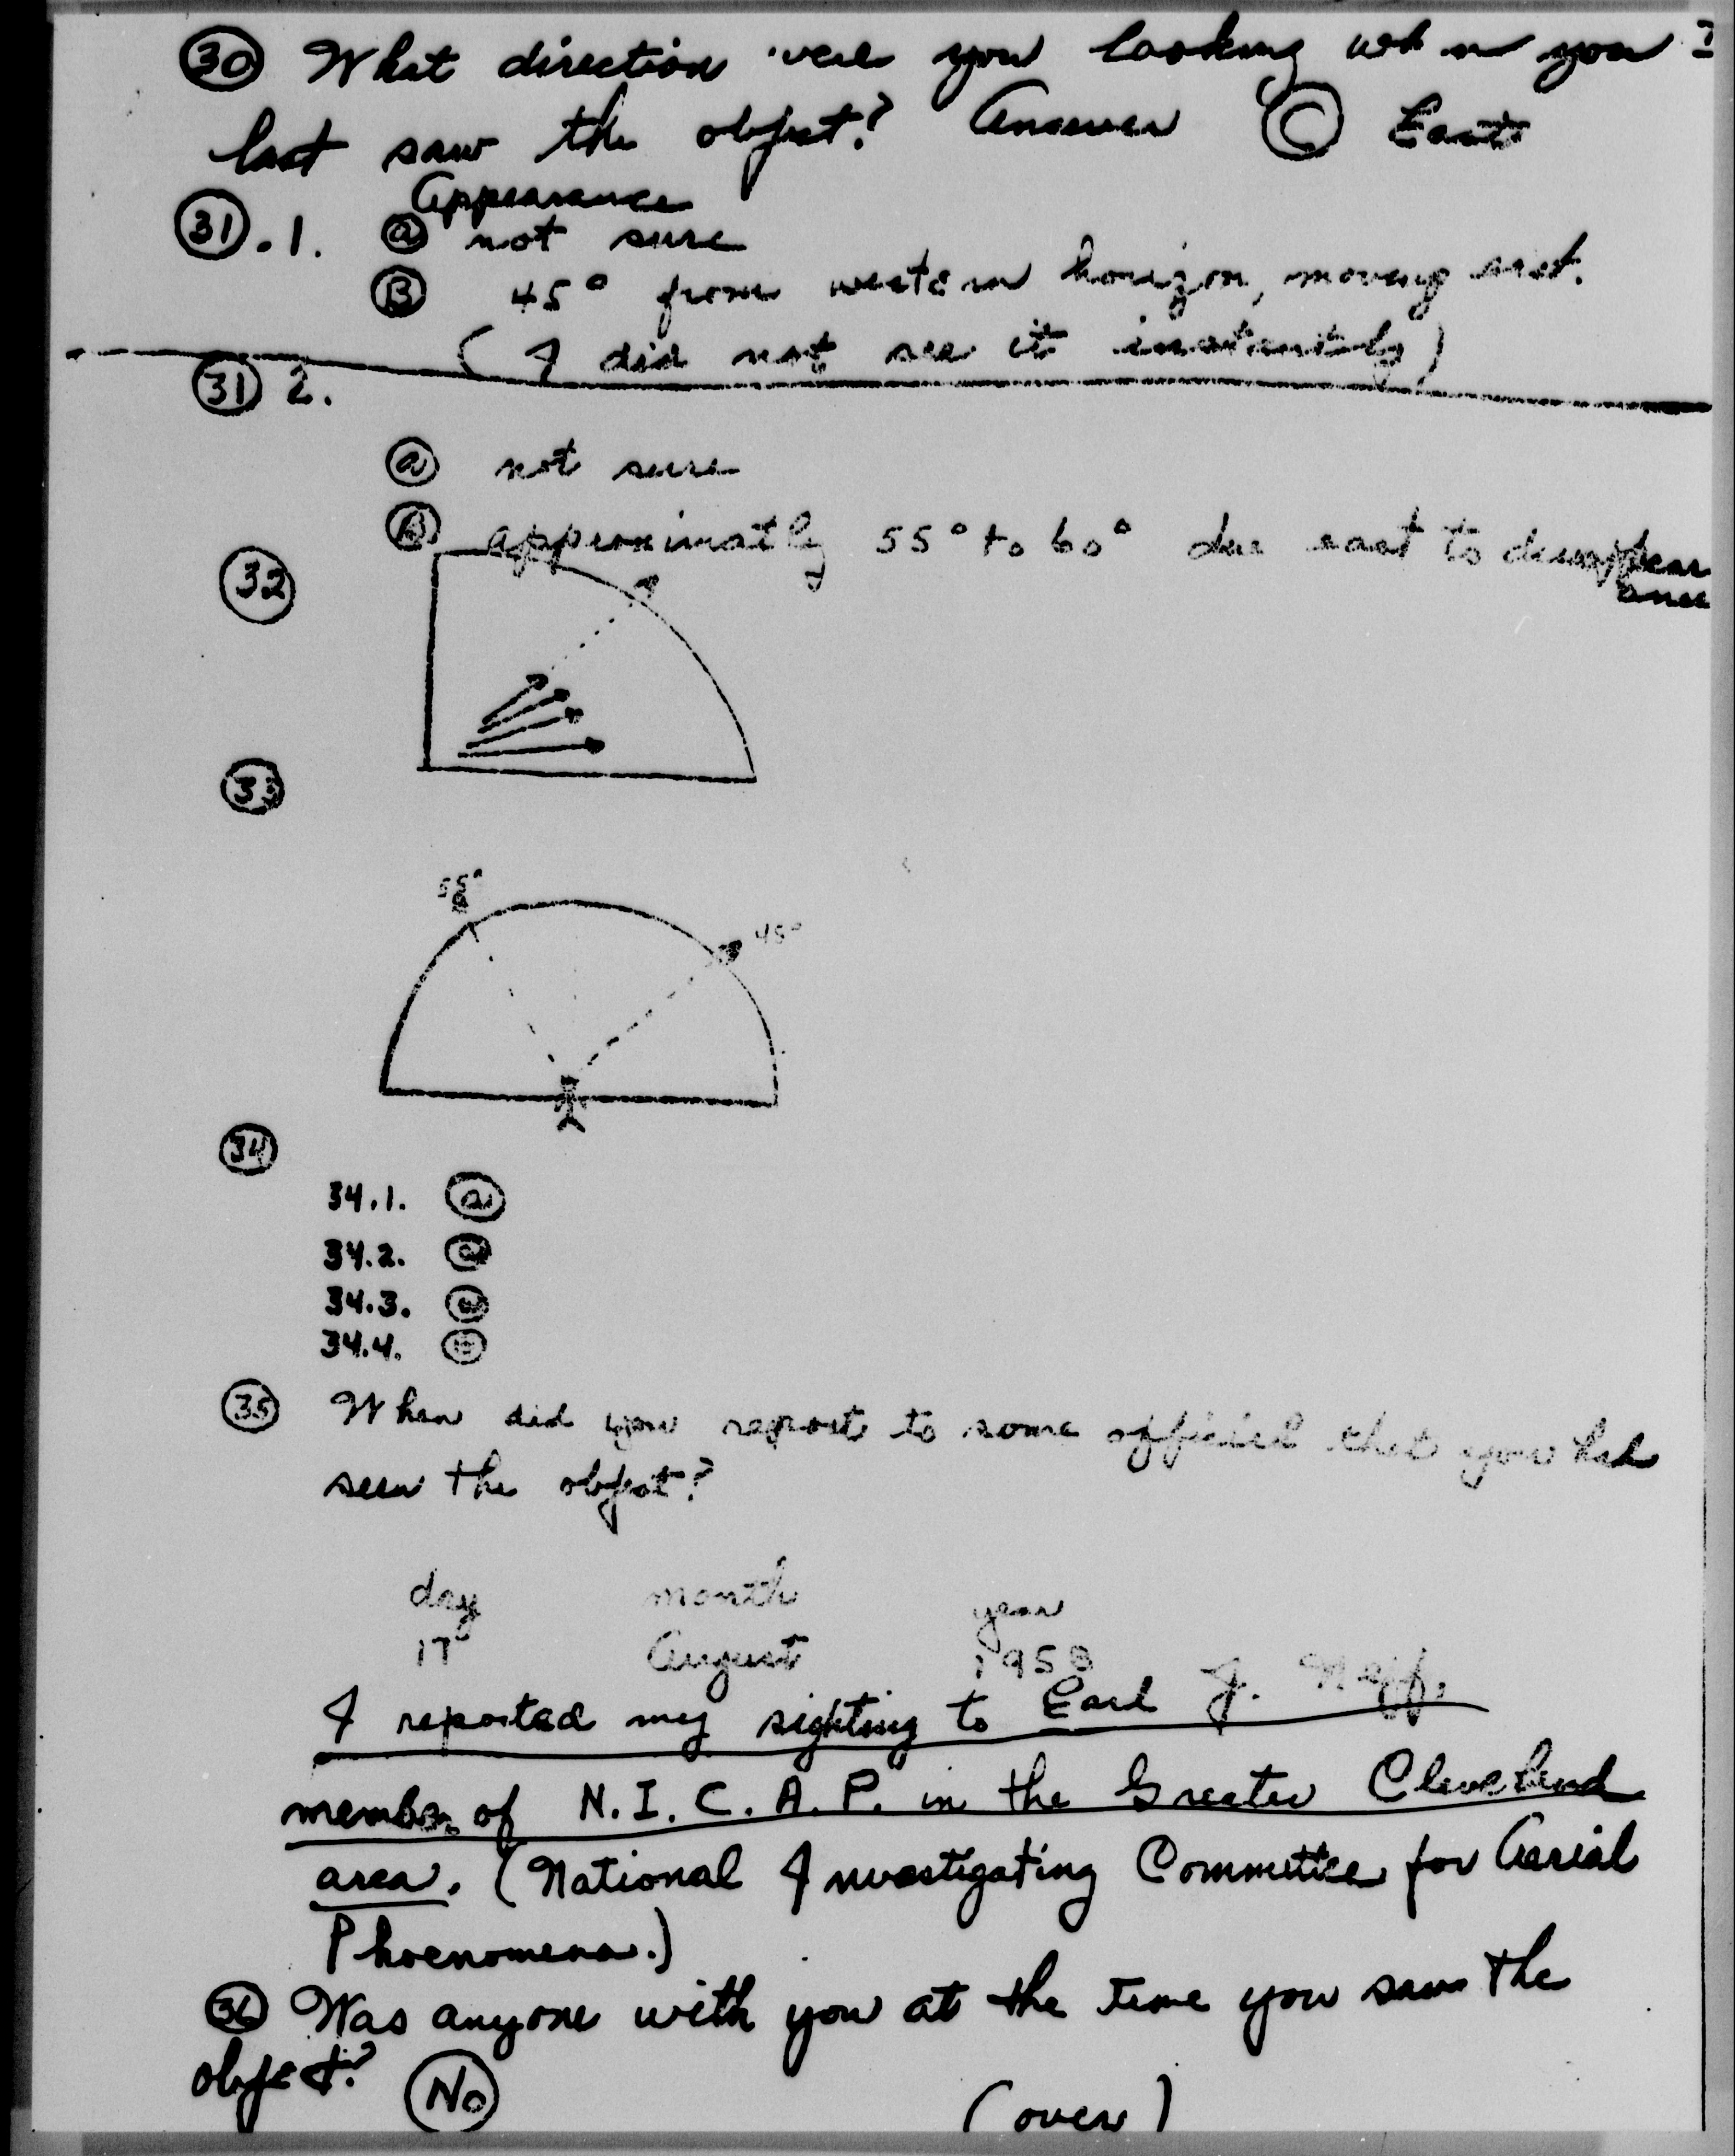 30 What direction were you looking when you
last saw the object? Answer C East
Appearance
31.1. a not sure
B 45° from western horizon, moving east.
(I did not see it instantently)
31 2.
a not sure
B approximatly 55° to 60° due east to disappear
ance
32
33
55°
45°
34
34.1. a
34.2. a
34.3.
34.4.
35 When did you report to some official that you had
seen the object?
day month year
17 August 1958
I reported my sighting to Earl J. Neff,
member of N.I.C.A.P. in the Greater Cleveland
area. (National Investigating Committee for Aerial
Phoenomena.)
36 Was anyone with you at the time you saw the
object? No
(over)